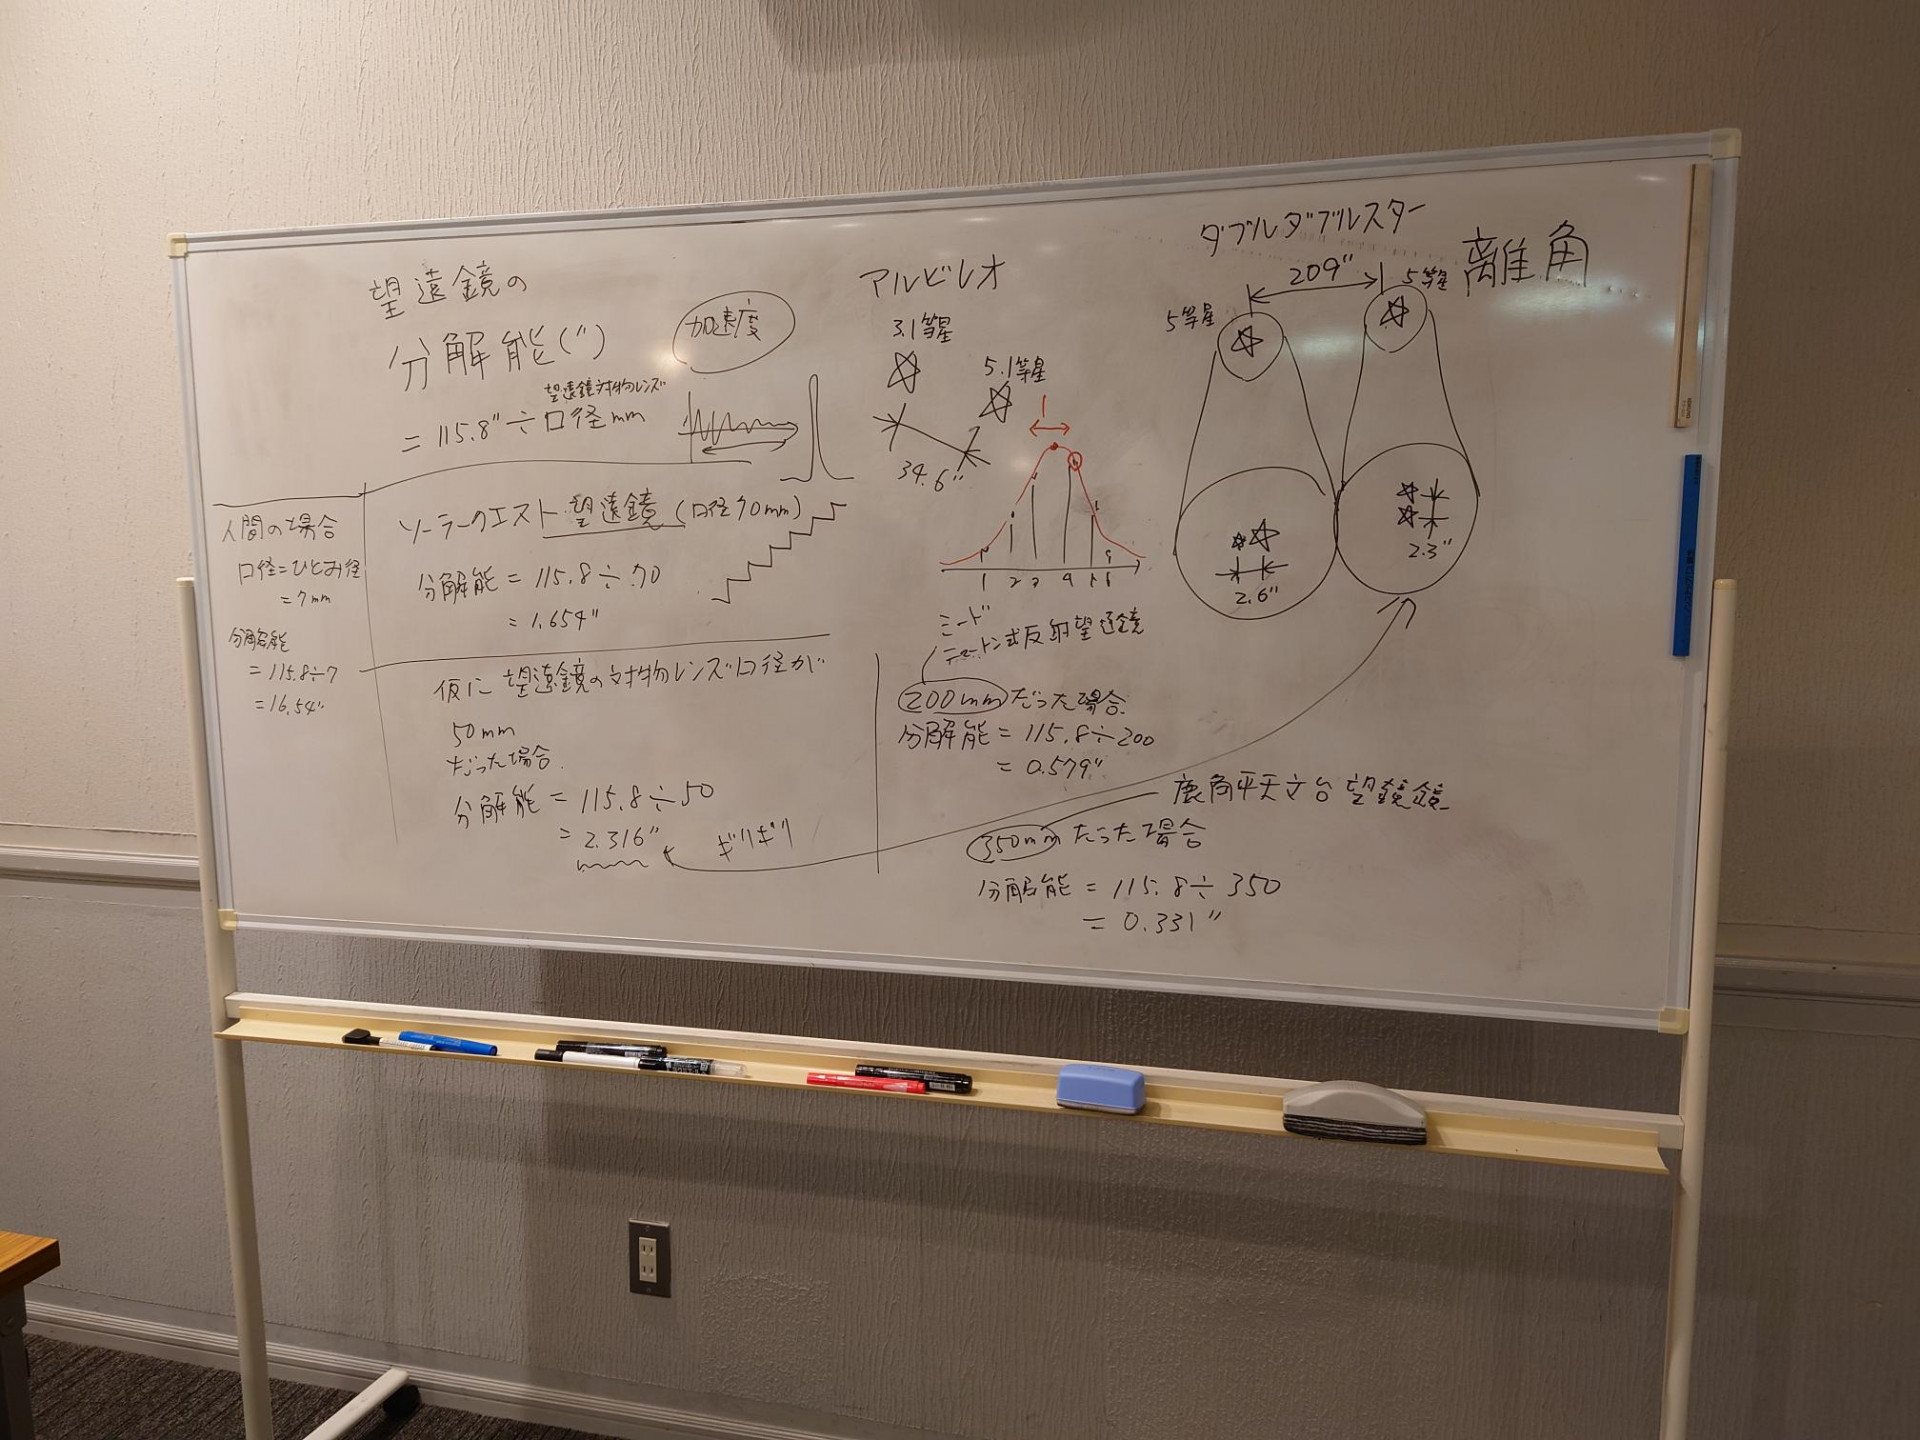 望遠鏡の
分解能(″)
望遠鏡対物レンズ
= 115.8″÷口径mm
加速度
人間の場合
口径=ひとみ径
= 7mm
分解能
= 115.8÷7
= 16.54″
ソーラークエスト望遠鏡(口径70mm)
分解能 = 115.8÷70
= 1.654″
仮に望遠鏡の対物レンズ口径が
50mm
だった場合.
分解能 = 115.8÷50
= 2.316″
ギリギリ
アルビレオ
3.1等星
5.1等星
34.6″
1
1 2 3 4
ミード
ニュートン式反射望遠鏡
200mmだった場合.
分解能 = 115.8÷200
= 0.579″
鹿角平天文台望鏡鏡
350mmだった場合
分解能 = 115.8÷350
= 0.331″
ダブルダブルスター
離角
209″
5等星
5等星
2.6″
2.3″